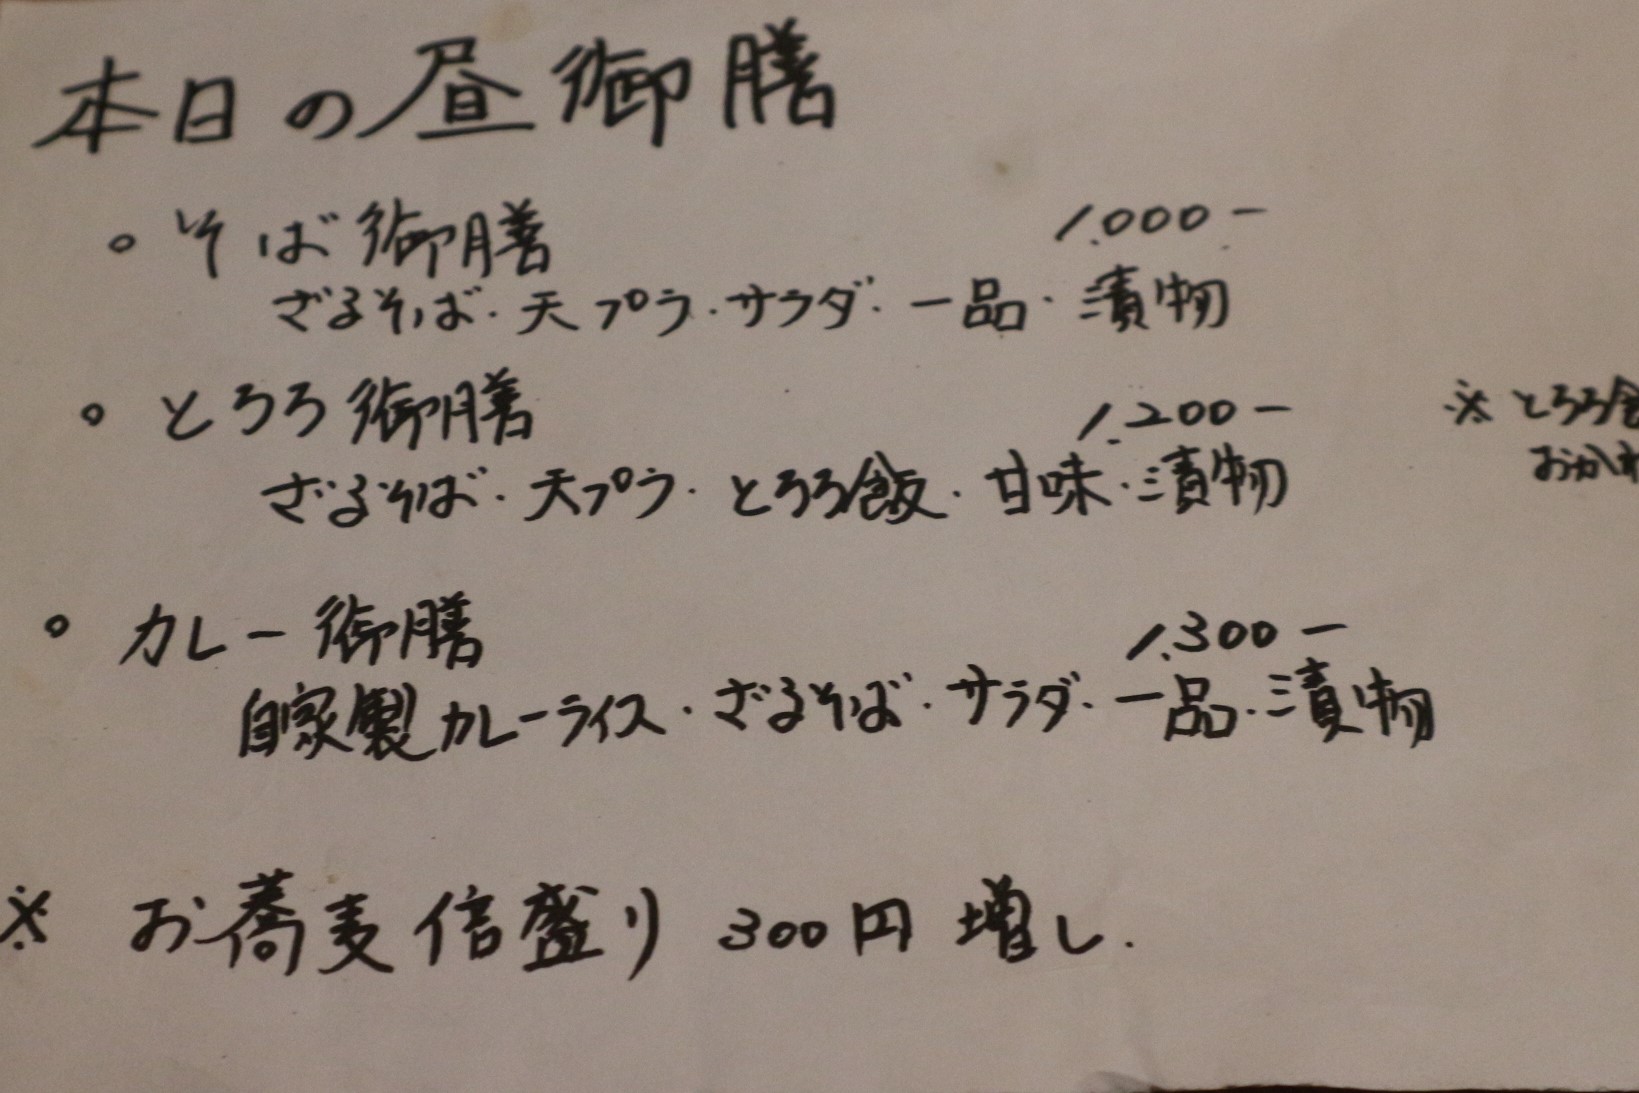 本日の昼御膳
。そば御膳 1.000-
ざるそば・天プラ・サラダ・一品・漬物
。とろろ御膳 1.200- ※とろろ
ざるそば・天プラ・とろろ飯・甘味・漬物 おか
。カレー御膳 1.300-
自家製カレーライス・ざるそば・サラダ・一品・漬物
※ お蕎麦倍盛り 300円増し.